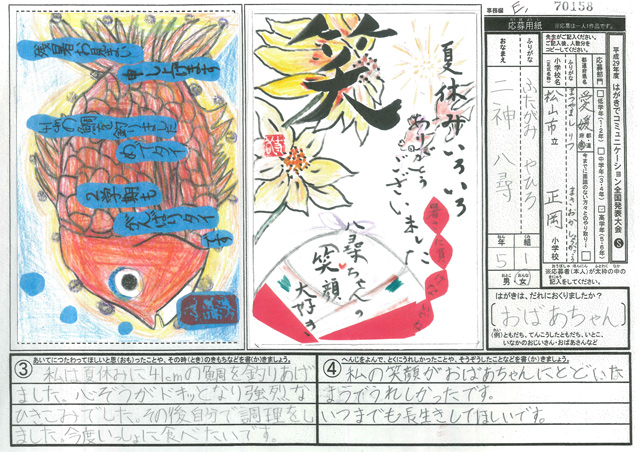 事務局 E, 70158
残暑お見舞い
申し上げます
41cmの鯛を釣りました
めでタイ
2学期も
がんばりタイ
です
笑
夏休みいろいろ
ありがとう
ございました
八尋ちゃんの
笑顔
大好き
応募用紙
※応募は一人1作品です。
先生がご記入ください。
ご記入後、人数分を
コピーしてください。
平成29年度 はがきでコミュニケーション全国発表大会 S
応募部門
低学年(1・2年)
中学年(3・4年)
高学年(5・6年)
都道府県名
愛媛
今までに面識のない方々とのやり取り
ふりがな
まつやましりつ まさおか しょうがっこう
小学校名
松山市立 正岡 小学校
ふりがな
ふたがみ やひろ
おなまえ
神 八尋
5年 1組
男 女
※応募者(本人)が太枠の中の
記入をしてください。
はがきは、だれにおくりましたか?
おばあちゃん
(例)ともだち、てんこうしたともだち、いとこ、
いなかのおじいさん・おばあさんなど
③ あいてにつたわってほしいと思(おも)ったことや、その時(とき)のきもちなどを書(か)きましょう。
私は夏休みに41cmの鯛を釣りあげ
ました。心ぞうがドキッとなり強烈な
ひきこみでした。その後自分で調理をし
ました。今度いっしょに食べたいです。
④ へんじをよんで、とくにうれしかったことや、そうぞうしたことなどを書(か)きましょう。
私の笑顔がおばあちゃんにとどいた
ようでうれしかったです。
いつまでも長生きしてほしいです。